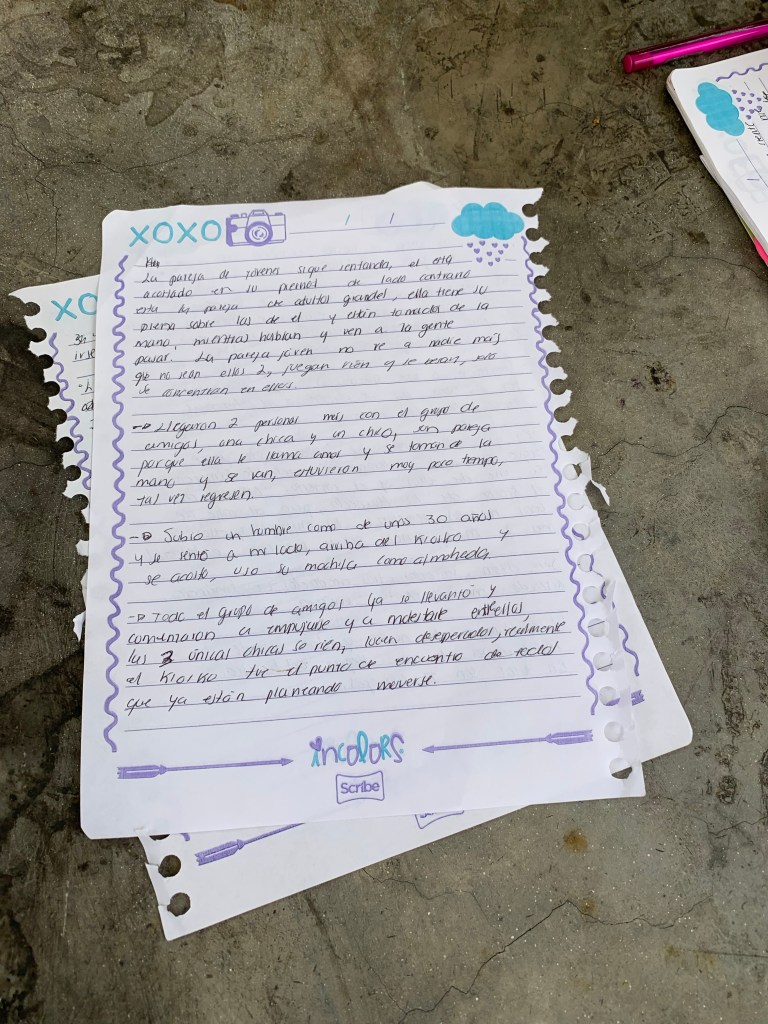 XOXO
/ /
La pareja de jovenes sigue sentanda, el está
acostado en su piernas de lado contrario
esta la pareja de adultos grandes, ella tiene su
pierna sobre las de el y están tomados de la
mano, mientras hablan y ven a la gente
pasar. La pareja joven no ve a nadie más
que no sean ellos 2, juegan rien y se besan, solo
se concentran en ellos.
-> Llegaron 2 personas mas con el grupo de
amigos, una chica y un chico, son pareja
porque ella le llama amor y se toman de la
mano y se van, estuvieron muy poco tiempo,
tal vez regresen.
-> Subio un hombre como de unos 30 años
y se sentó a mi lado, arriba del Kiosko y
se acosto, uso su mochila como almohada
-> Todo el grupo de amigos ya se llevanto y
comenzaron a empujarse y a molestarse entre ellos,
las 3 únicas chicas se rien, lucen desesperados, realmente
el Kiosko fue el punto de encuentro de todos
que ya están planeando moverse.
incolors
Scribe
XO